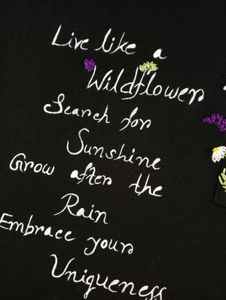 Live like a
Wildflower
Search for
Sunshine
Grow after the
Rain
Embrace your
Uniqueness